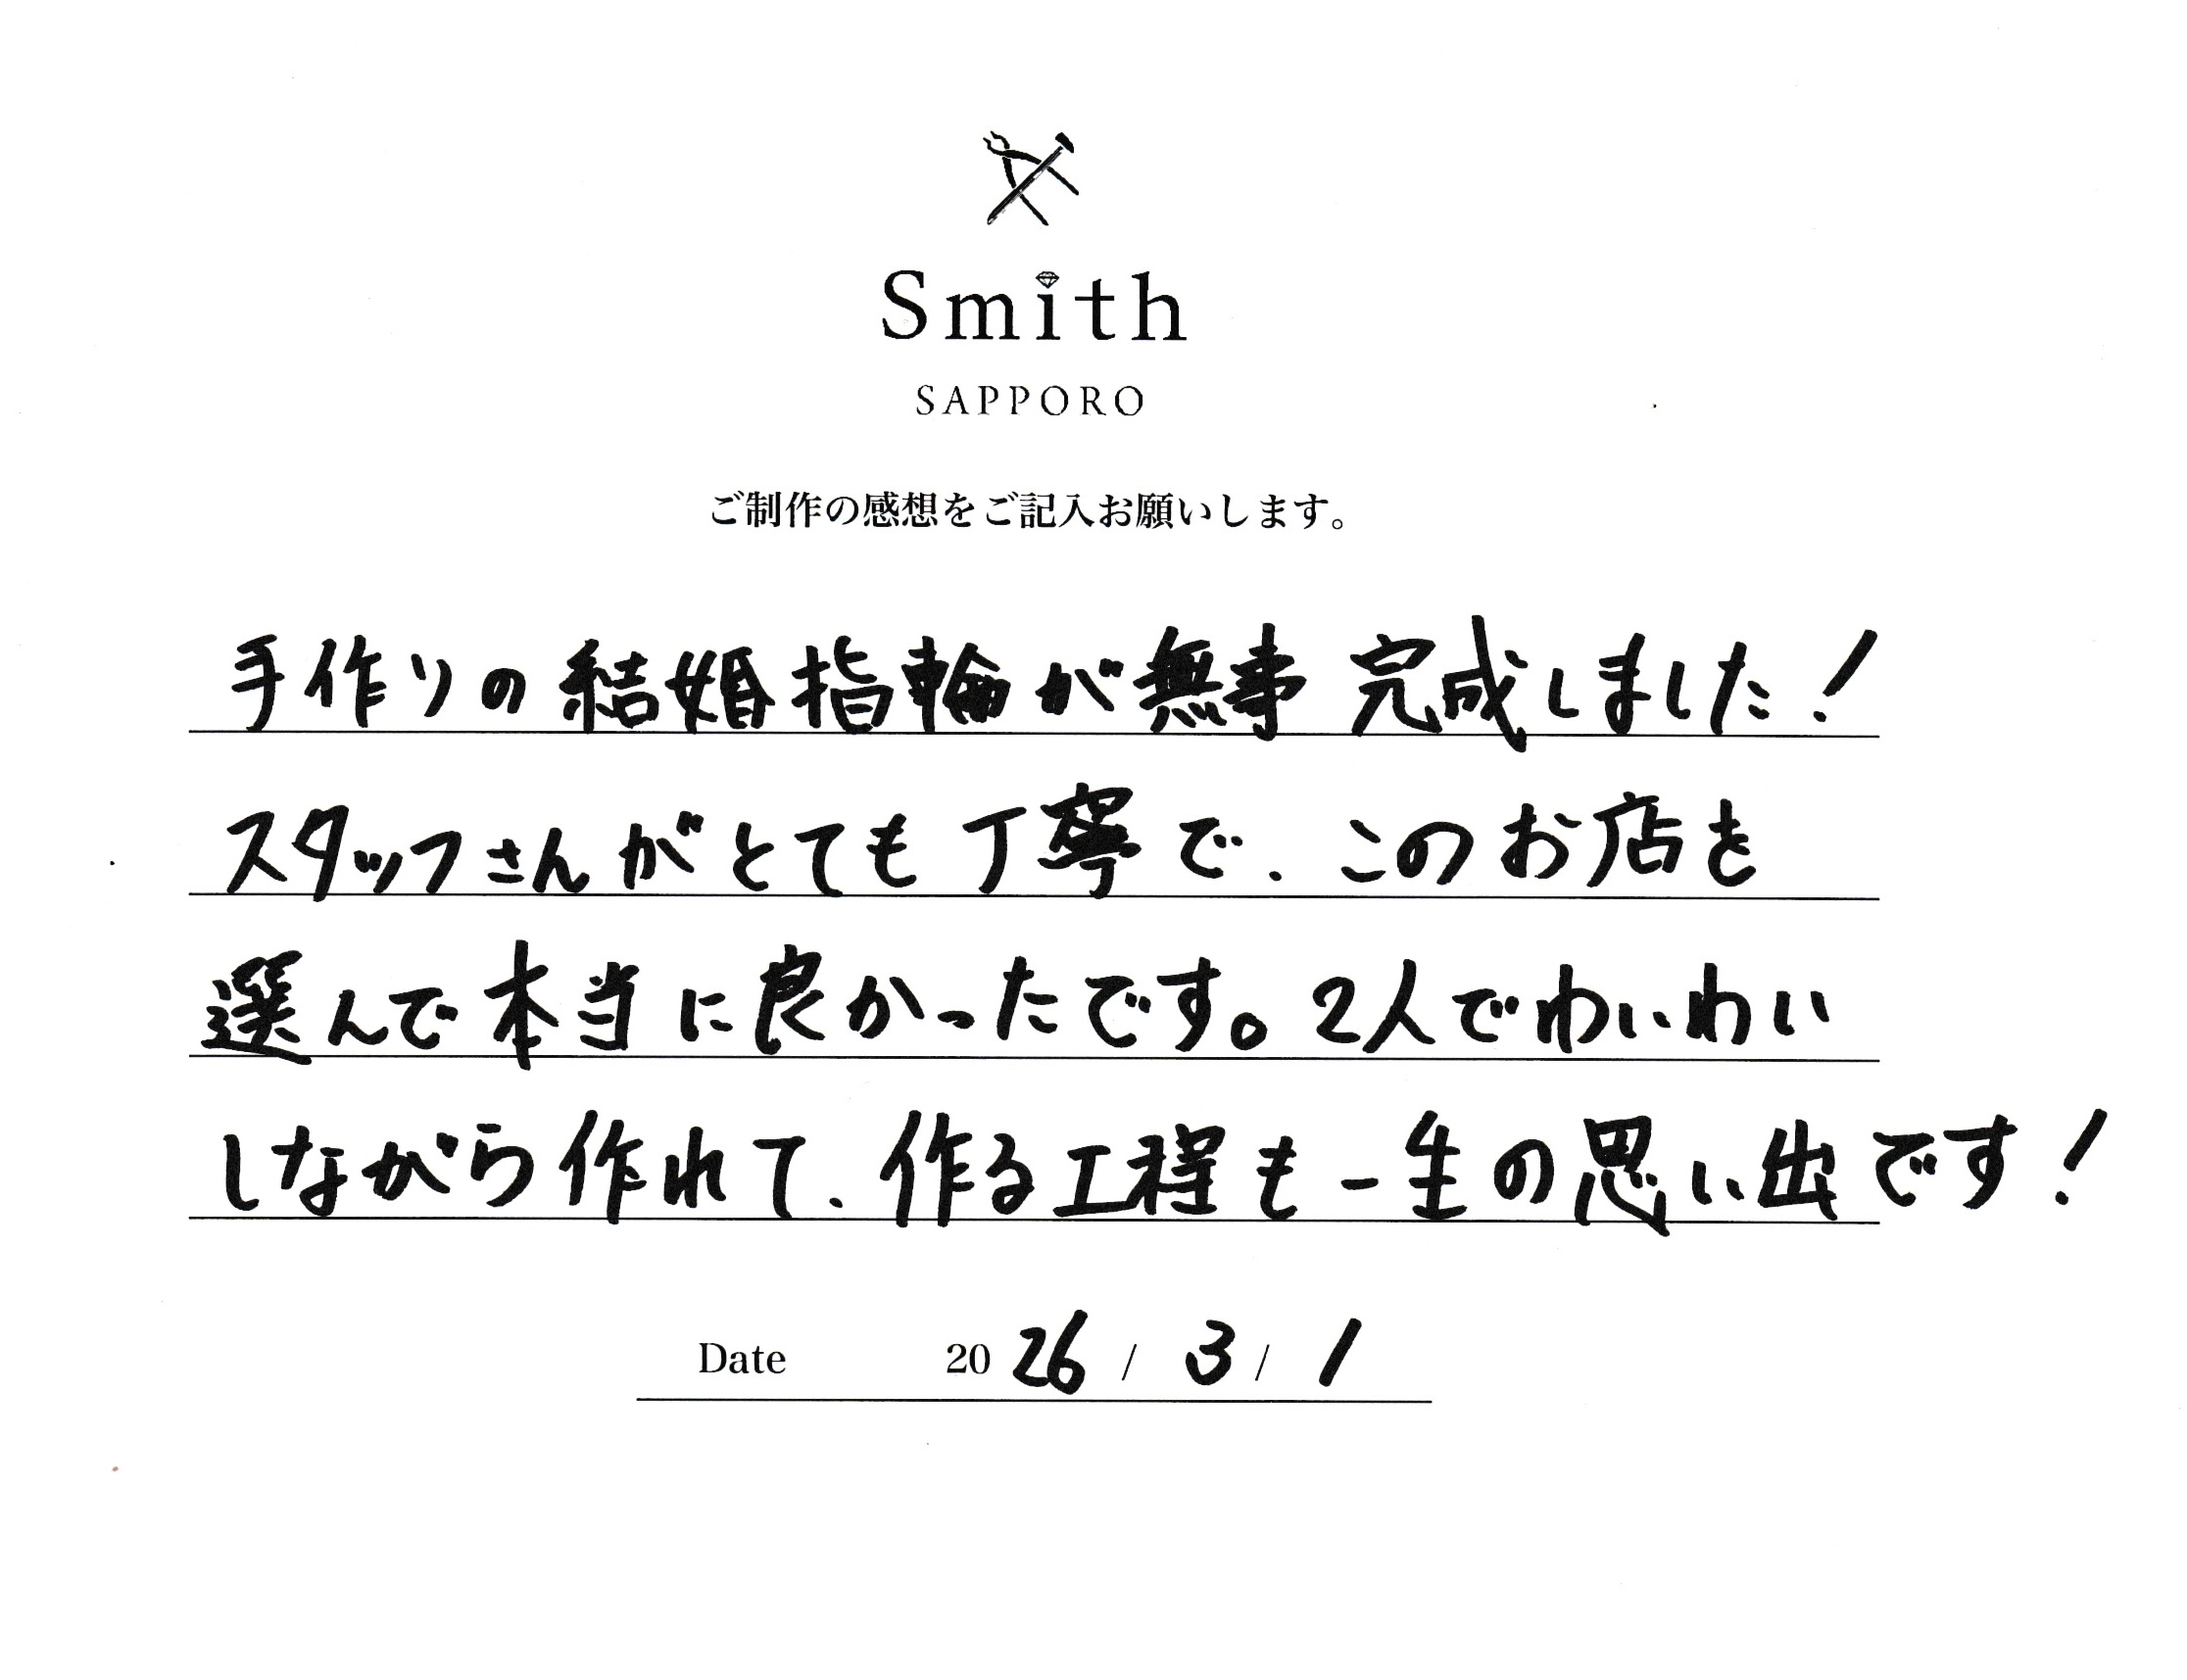 Smith
SAPPORO
ご制作の感想をご記入お願いします。
手作りの結婚指輪が無事完成しました!
スタッフさんがとても丁寧で、このお店を
選んで本当に良かったです。2人でわいわい
しながら作れて、作る工程も一生の思い出です!
Date 2026 / 3 / 1